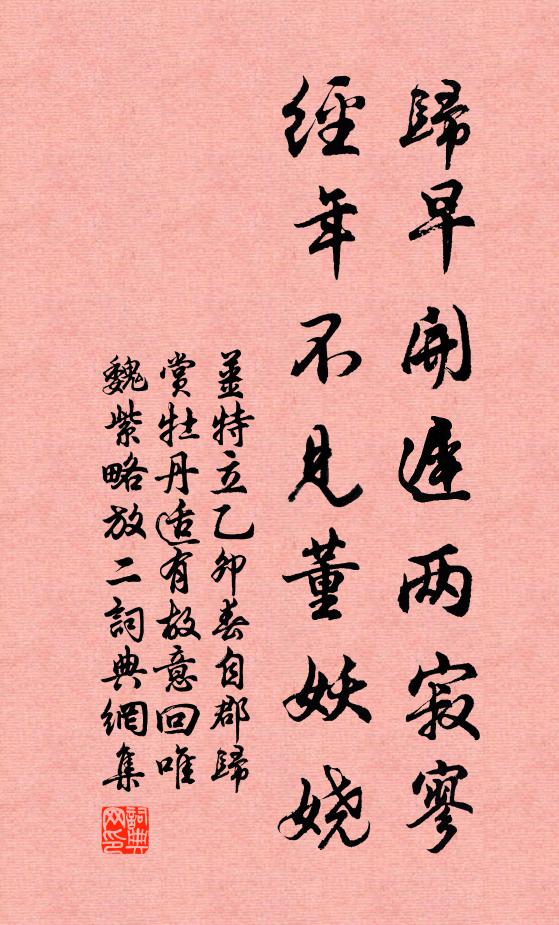 歸早開遲两寂寥
經年不見董妖娆
薑特立乙卯春自郡歸
賞牡丹适有故意回唯
魏紫略放二詞典網集
詞典网印